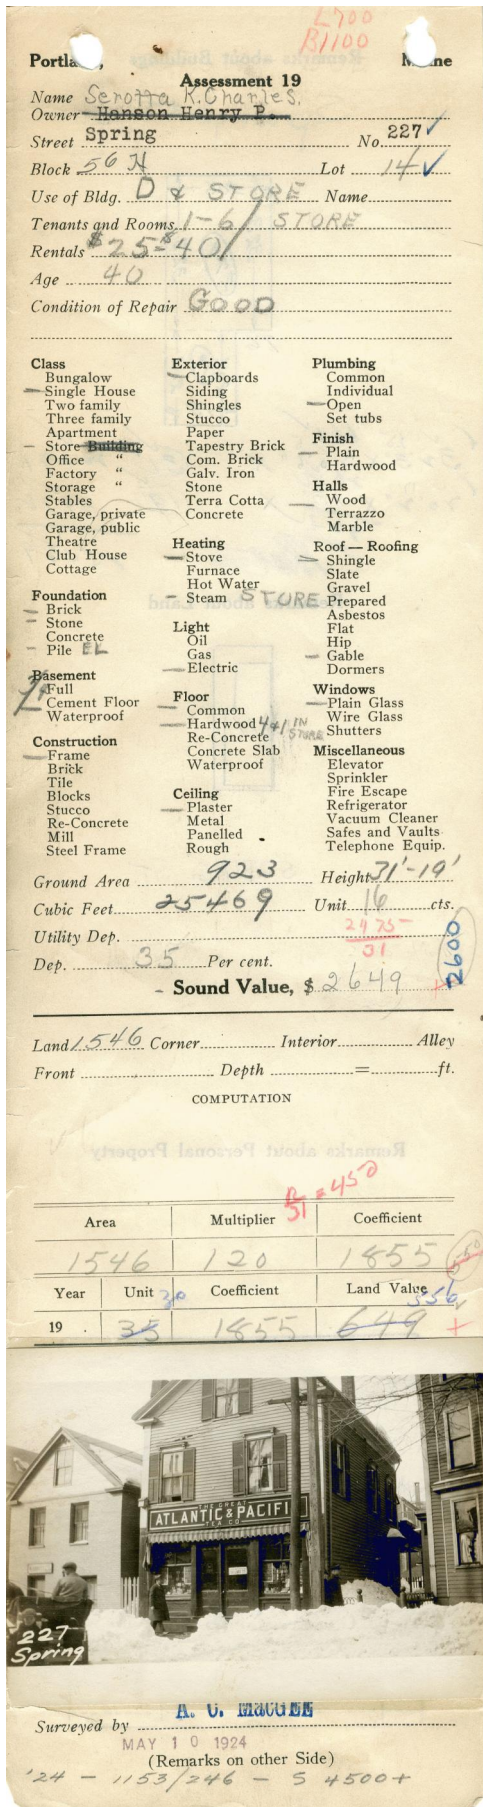 L700
B1100
Portland, Maine
Assessment 19
Name Serotta K. Charles.
Owner Hanson Henry P.
Street Spring No. 227 ✓
Block 56 H Lot 14 ✓
Use of Bldg. D & STORE Name
Tenants and Rooms 1-6/ STORE
Rentals $25-$40/
Age 40
Condition of Repair GOOD
Class
Bungalow
Single House
Two family
Three family
Apartment
Store Building
Office "
Factory "
Storage "
Stables
Garage, private
Garage, public
Theatre
Club House
Cottage
Foundation
Brick
Stone
Concrete
Pile EL
Basement
Full
Cement Floor
Waterproof
Construction
Frame
Brick
Tile
Blocks
Stucco
Re-Concrete
Mill
Steel Frame
Exterior
Clapboards
Siding
Shingles
Stucco
Paper
Tapestry Brick
Com. Brick
Galv. Iron
Stone
Terra Cotta
Concrete
Heating
Stove
Furnace
Hot Water
Steam STORE
Light
Oil
Gas
Electric
Floor
Common
Hardwood 4+1 IN STORE
Re-Concrete
Concrete Slab
Waterproof
Ceiling
Plaster
Metal
Panelled
Rough
Plumbing
Common
Individual
Open
Set tubs
Finish
Plain
Hardwood
Halls
Wood
Terrazzo
Marble
Roof — Roofing
Shingle
Slate
Gravel
Prepared
Asbestos
Flat
Hip
Gable
Dormers
Windows
Plain Glass
Wire Glass
Shutters
Miscellaneous
Elevator
Sprinkler
Fire Escape
Refrigerator
Vacuum Cleaner
Safes and Vaults
Telephone Equip.
Ground Area 923 Height 31'-19'
Cubic Feet 25469 Unit 16 cts.
Utility Dep. 2475-
31
Dep. 35 Per cent. 2600
Sound Value, $ 2649 +
Land 1546 Corner Interior Alley
Front Depth = ft.
COMPUTATION
Remarks about Personal Property
R/31 = 450
Area Multiplier Coefficient
1546 120 1855
Year Unit 30 Coefficient Land Value 556
19 . 35 1855 649 +
THE GREAT
ATLANTIC & PACIFI
TEA CO
227
Spring
Surveyed by A. C. MacGEE
MAY 10 1924
(Remarks on other Side)
'24 - 1153/246 - S 4500+